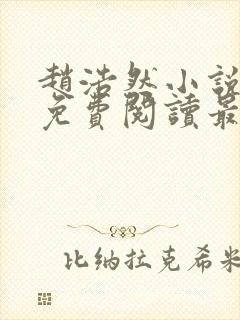 趙浩然小說
免費閱讀最
比纳拉克希米